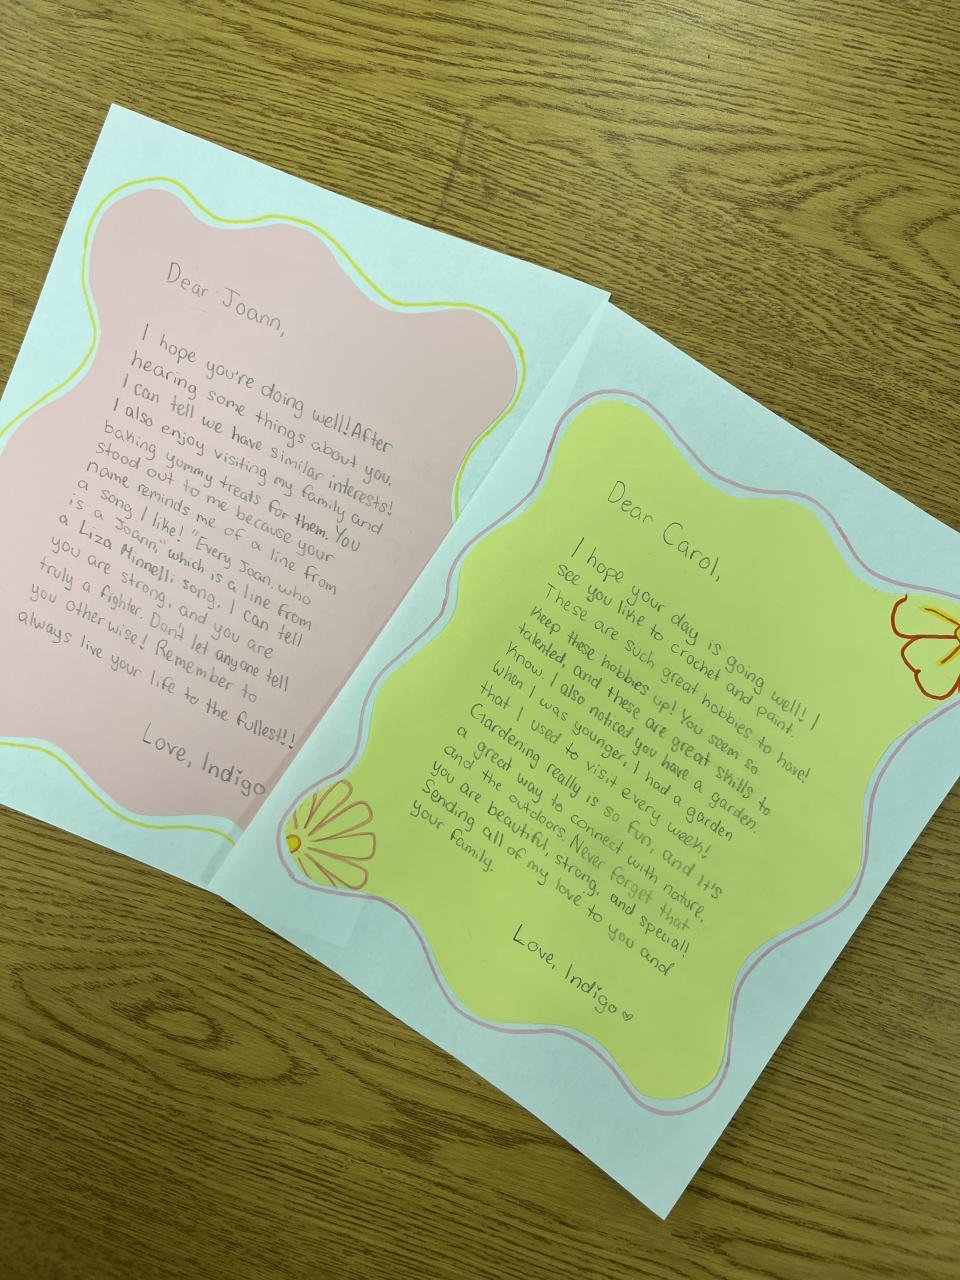 Dear Joann,
I hope you're doing well! After
hearing some things about you,
I can tell we have similar interests!
I also enjoy visiting my family and
baking yummy treats for them. You
stood out to me because your
name reminds me of a line from
a song I like! "Every Joan who
is a Joann," which is a line from
a Liza Minnelli song. I can tell
you are strong, and you are
truly a fighter. Don't let anyone tell
you otherwise! Remember to
always live your life to the fullest!!
Love, Indigo
Dear Carol,
I hope your day is going well! I
see you like to crochet and paint.
These are such great hobbies to have!
Keep these hobbies up! You seem so
talented, and these are great skills to
know. I also noticed you have a garden.
When I was younger, I had a garden
that I used to visit every week!
Gardening really is so fun, and it's
a great way to connect with nature,
and the outdoors. Never forget that
you are beautiful, strong, and special!
Sending all of my love to you and
your family.
Love, Indigo